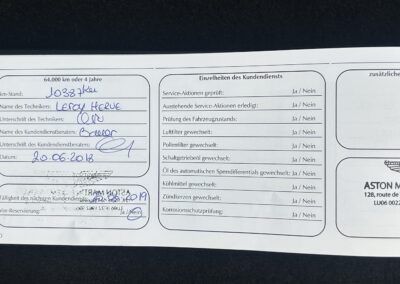 64.000 km oder 4 Jahre
km-Stand: 10387km
Name des Technikers: LEROY HERVE
Unterschrift des Technikers:
Name des Kundendienstberaters:
Unterschrift des Kundendienstberaters:
Datum: 20.06.2018
Fälligkeit des nächsten Kundendienstes: 2019
Ja / Nein
Einzelheiten des Kundendiensts
Service-Aktionen geprüft: Ja / Nein
Ausstehende Service-Aktionen erledigt: Ja / Nein
Prüfung des Fahrzeugzustands: Ja / Nein
Luftfilter gewechselt: Ja / Nein
Pollenfilter gewechselt: Ja / Nein
Schaltgetriebeöl gewechselt: Ja / Nein
Öl des automatischen Sperrdifferentials gewechselt: Ja / Nein
Kühlmittel gewechselt: Ja / Nein
Zündkerzen gewechselt: Ja / Nein
Korrosionsschutzprüfung: Ja / Nein
zusätzliche
ASTON M
128, route de
LU06 002